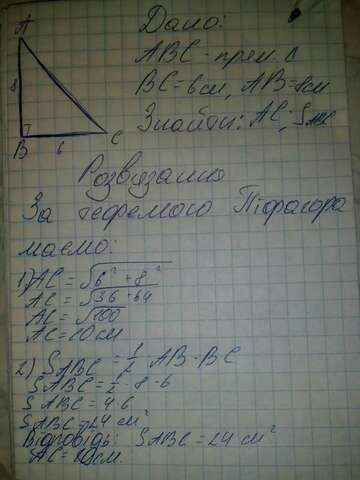 A
8
B
6
C
Дано:
ABC - прям. Δ
BC=6см, AB=8см
Знайти: AC; S ABC
Розвязання
За теоремою Піфагора
маємо:
1) AC = √6² + 8²
AC = √36 + 64
AC = √100
AC = 10 см
2) S ABC = 1/2 · AB · BC
S ABC = 1/2 · 8 · 6
S ABC = 4·6
S ABC = 24 см²
Відповідь: S ABC = 24 см²
AC = 10см.